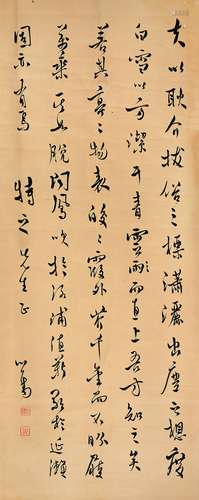 夫以耿介拔俗之標瀟灑出塵之想度
白雪以方潔干青雲而直上吾方知之矣
若其亭〻物表皎〻霞外芥千金而不眄屣
萬乘其如脫聞鳳吹於洛浦值薪歌於延瀨
固亦有焉 特之先生正
心畬